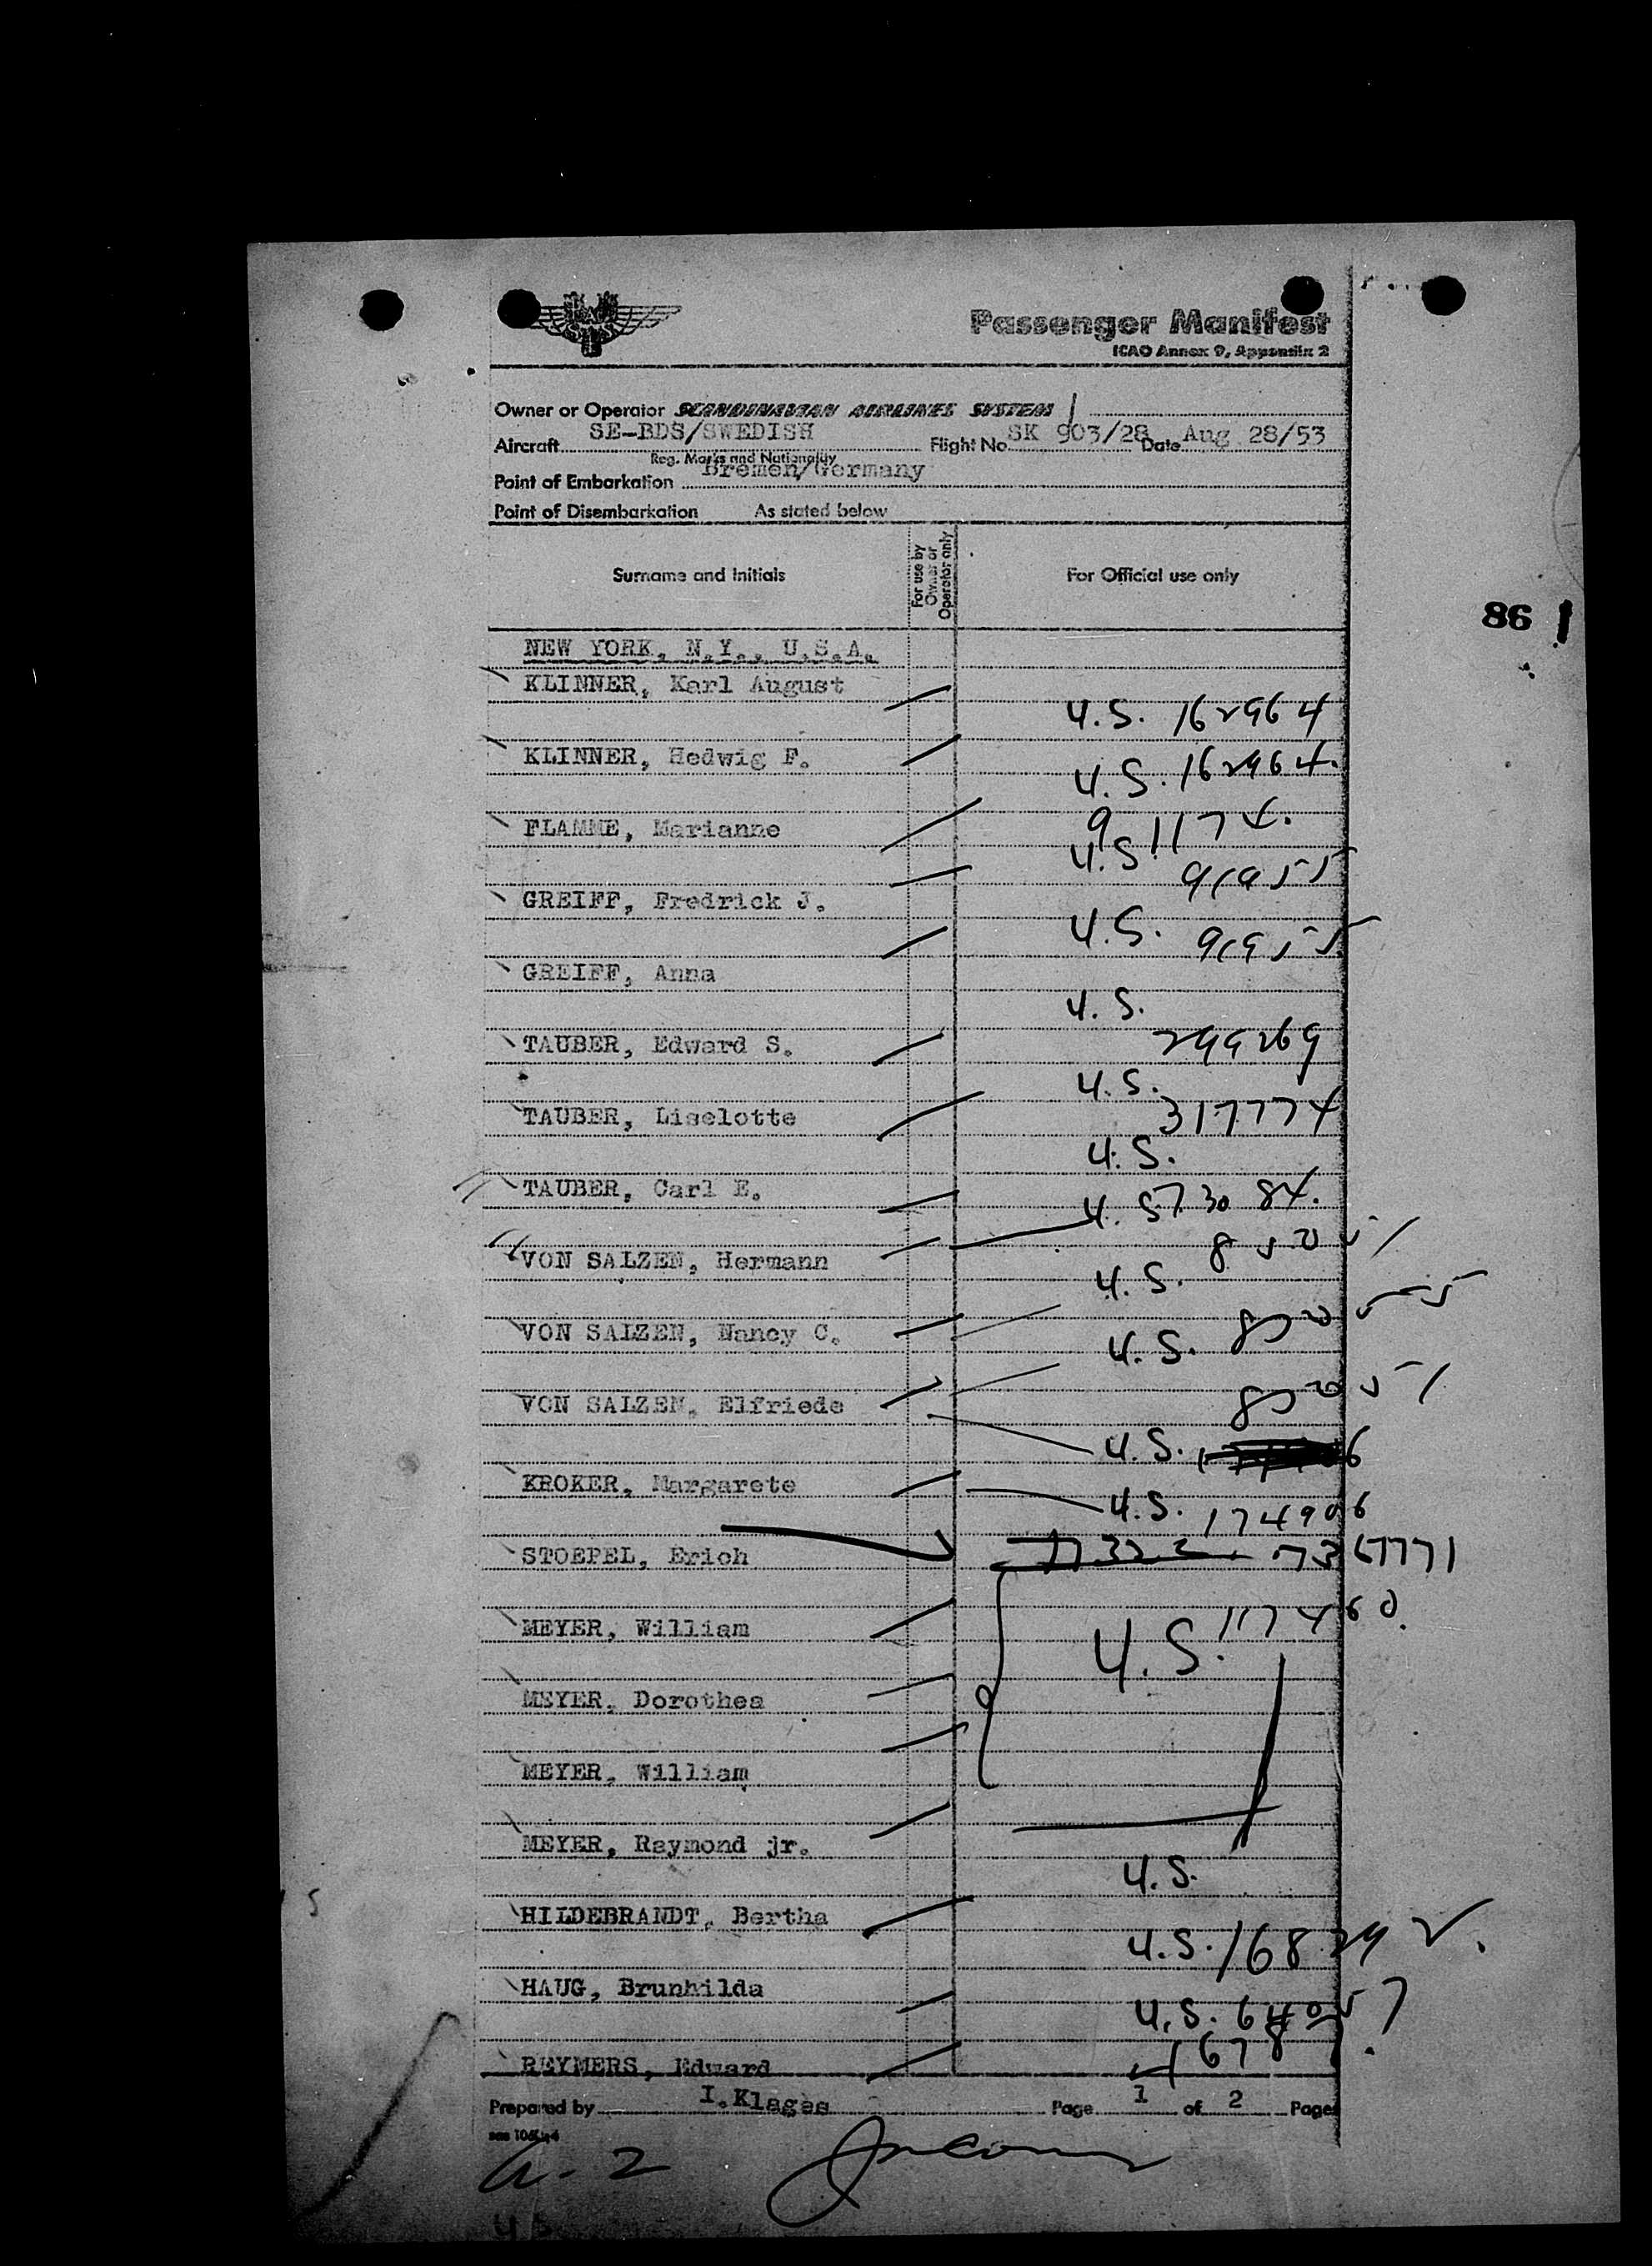 Passenger Manifest
ICAO Annex 9, Appendix 2
Owner or Operator SCANDINAVIAN AIRLINES SYSTEM
Aircraft SE-BDS/SWEDISH Flight No SK 903/28 Date Aug 28/53
Reg. Marks and Nationality
Point of Embarkation Bremen/Germany
Point of Disembarkation As stated below
Surname and Initials For use by Owner or Operator only For Official use only
86
NEW YORK, N.Y., U.S.A.
KLINNER, Karl August
U.S. 162964
KLINNER, Hedwig F.
U.S. 162964.
FLAMME, Marianne
U.S. 91174.
91955
GREIFF, Fredrick J.
U.S. 91955
GREIFF, Anna
U.S.
TAUBER, Edward S. 299269
U.S.
TAUBER, Liselotte 317774
U.S.
TAUBER, Carl E.
VON SALZEN, Hermann
U.S.
VON SALZEN, Nancy C.
U.S.
VON SALZEN, Elfriede
U.S.
KROKER, Margarete
U.S. 174906
STOEPEL, Erich
MEYER, William
U.S. 117460.
MEYER, Dorothea
MEYER, William
MEYER, Raymond jr.
U.S.
HILDEBRANDT, Bertha
U.S.
HAUG, Brunhilda
U.S.
REYMERS, Edward
Prepared by I.Klages Page 1 of 2 Pages